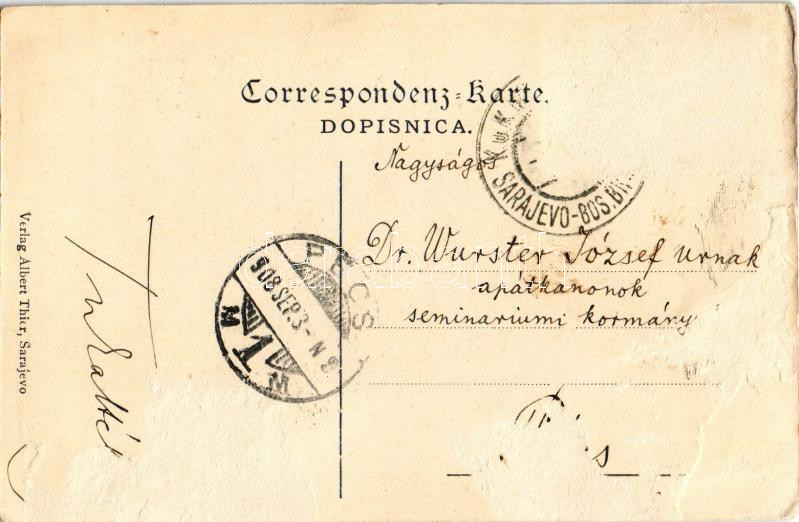 Correspondenz-Karte.
DOPISNICA.
Nagyságos
Dr. Wurster József urnak
apátkanonok
seminariumi kormány
SARAJEVO-BOS.
PÉCS
908 SEP. 3 - N 8
M
Verlag Albert Thier, Sarajevo